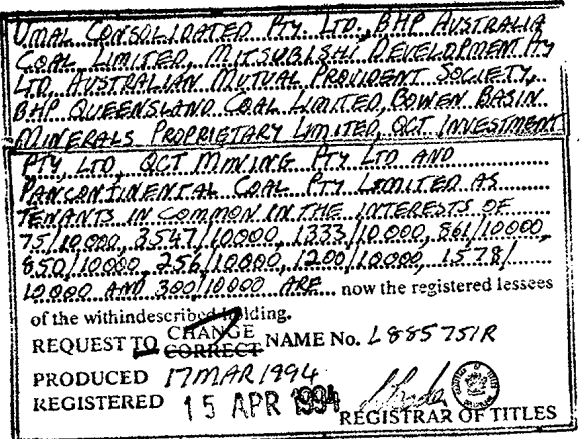 UMAL CONSOLIDATED PTY. LTD., BHP AUSTRALIA
COAL LIMITED, MITSUBISHI DEVELOPMENT PTY
LTD, AUSTRALIAN MUTUAL PROVIDENT SOCIETY,
BHP QUEENSLAND COAL LIMITED, BOWEN BASIN
MINERALS PROPRIETARY LIMITED, QCT INVESTMENT
PTY, LTD, QCT MINING PTY LTD AND
PANCONTINENTAL COAL PTY LIMITED AS
TENANTS IN COMMON IN THE INTERESTS OF
75/10,000, 3547/10000, 1333/10000, 861/10000,
850/10000, 256/10000, 1200/10000, 1578/
10000 AND 300/10000 ARE now the registered lessees
of the withindescribed holding.
REQUEST TO CHANGE
CORRECT NAME No. L885751R
PRODUCED 17 MAR 1994
REGISTERED 15 APR 1994
REGISTRAR OF TITLES